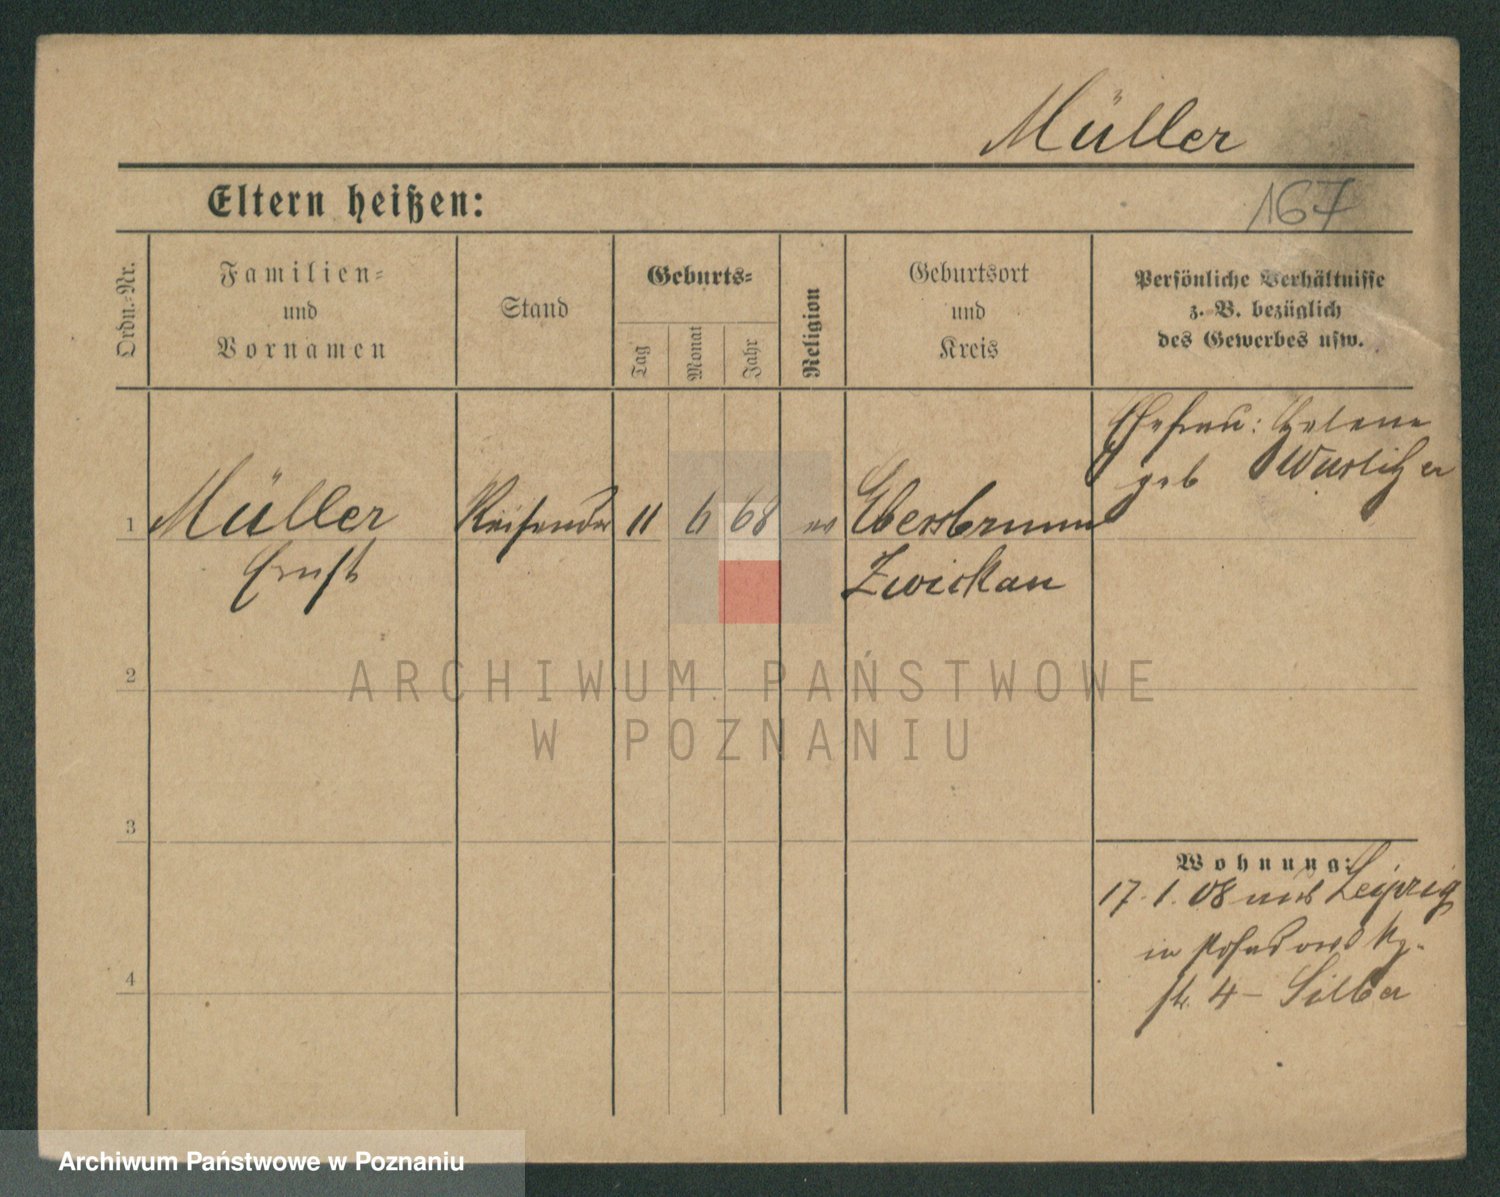 Müller
Eltern heißen:
167
Ordn.-Nr.
Familien-
und
Vornamen
Stand
Geburts-
Tag
Monat
Jahr
Religion
Geburtsort
und
Kreis
Persönliche Verhältnisse
z. B. bezüglich
des Gewerbes usw.
Ehefrau: Helene
geb Wurlitzer
1 Müller Reisender 11 6 68 ev Ebersbrunn
Ernst Zwickau
2
ARCHIWUM PAŃSTWOWE
W POZNANIU
3
Wohnung:
17.1.08 aus Leipzig
in
4
str 4 - Silber
Archiwum Państwowe w Poznaniu